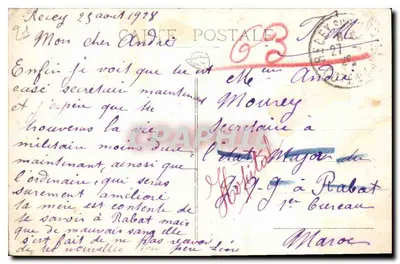 Recey 25 aout 1928
CARTE POSTALE
F. M.
63
Mon cher André
Enfin je voit que tu est
casé secretair maintenant
et j'espère que tu
trouveras la vie
militaire moin dure,
maintenant, ainsi que
l'ordinaire, qui seras
surement amélioré
ta mère est contente de
te savoir à Rabat mais
que de mauvais sang elle
s'est fait de ne pas recevoir
de tes nouvelles ton père
Mr André
Mourey
Secretaire à
l'état Major du
à Rabat
1er Bureau
Maroc
Hopital